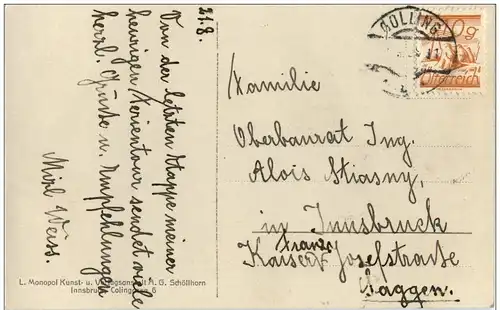 21.8.
Von der letzten Etappe meiner
heurigen Ferientour sendet viele
herzl. Grüße u. Empfehlungen
Weiss.
L. Monopol Kunst- u. Verlagsanstalt A. G. Schöllhorn
Innsbruck, Colingasse 6
GOLLING
0g
Österreich
Familie
Oberbaurat Ing.
Alois Stiasny,
in Innsbruck
Franz
Kaiser Josefstraße
Saggen.